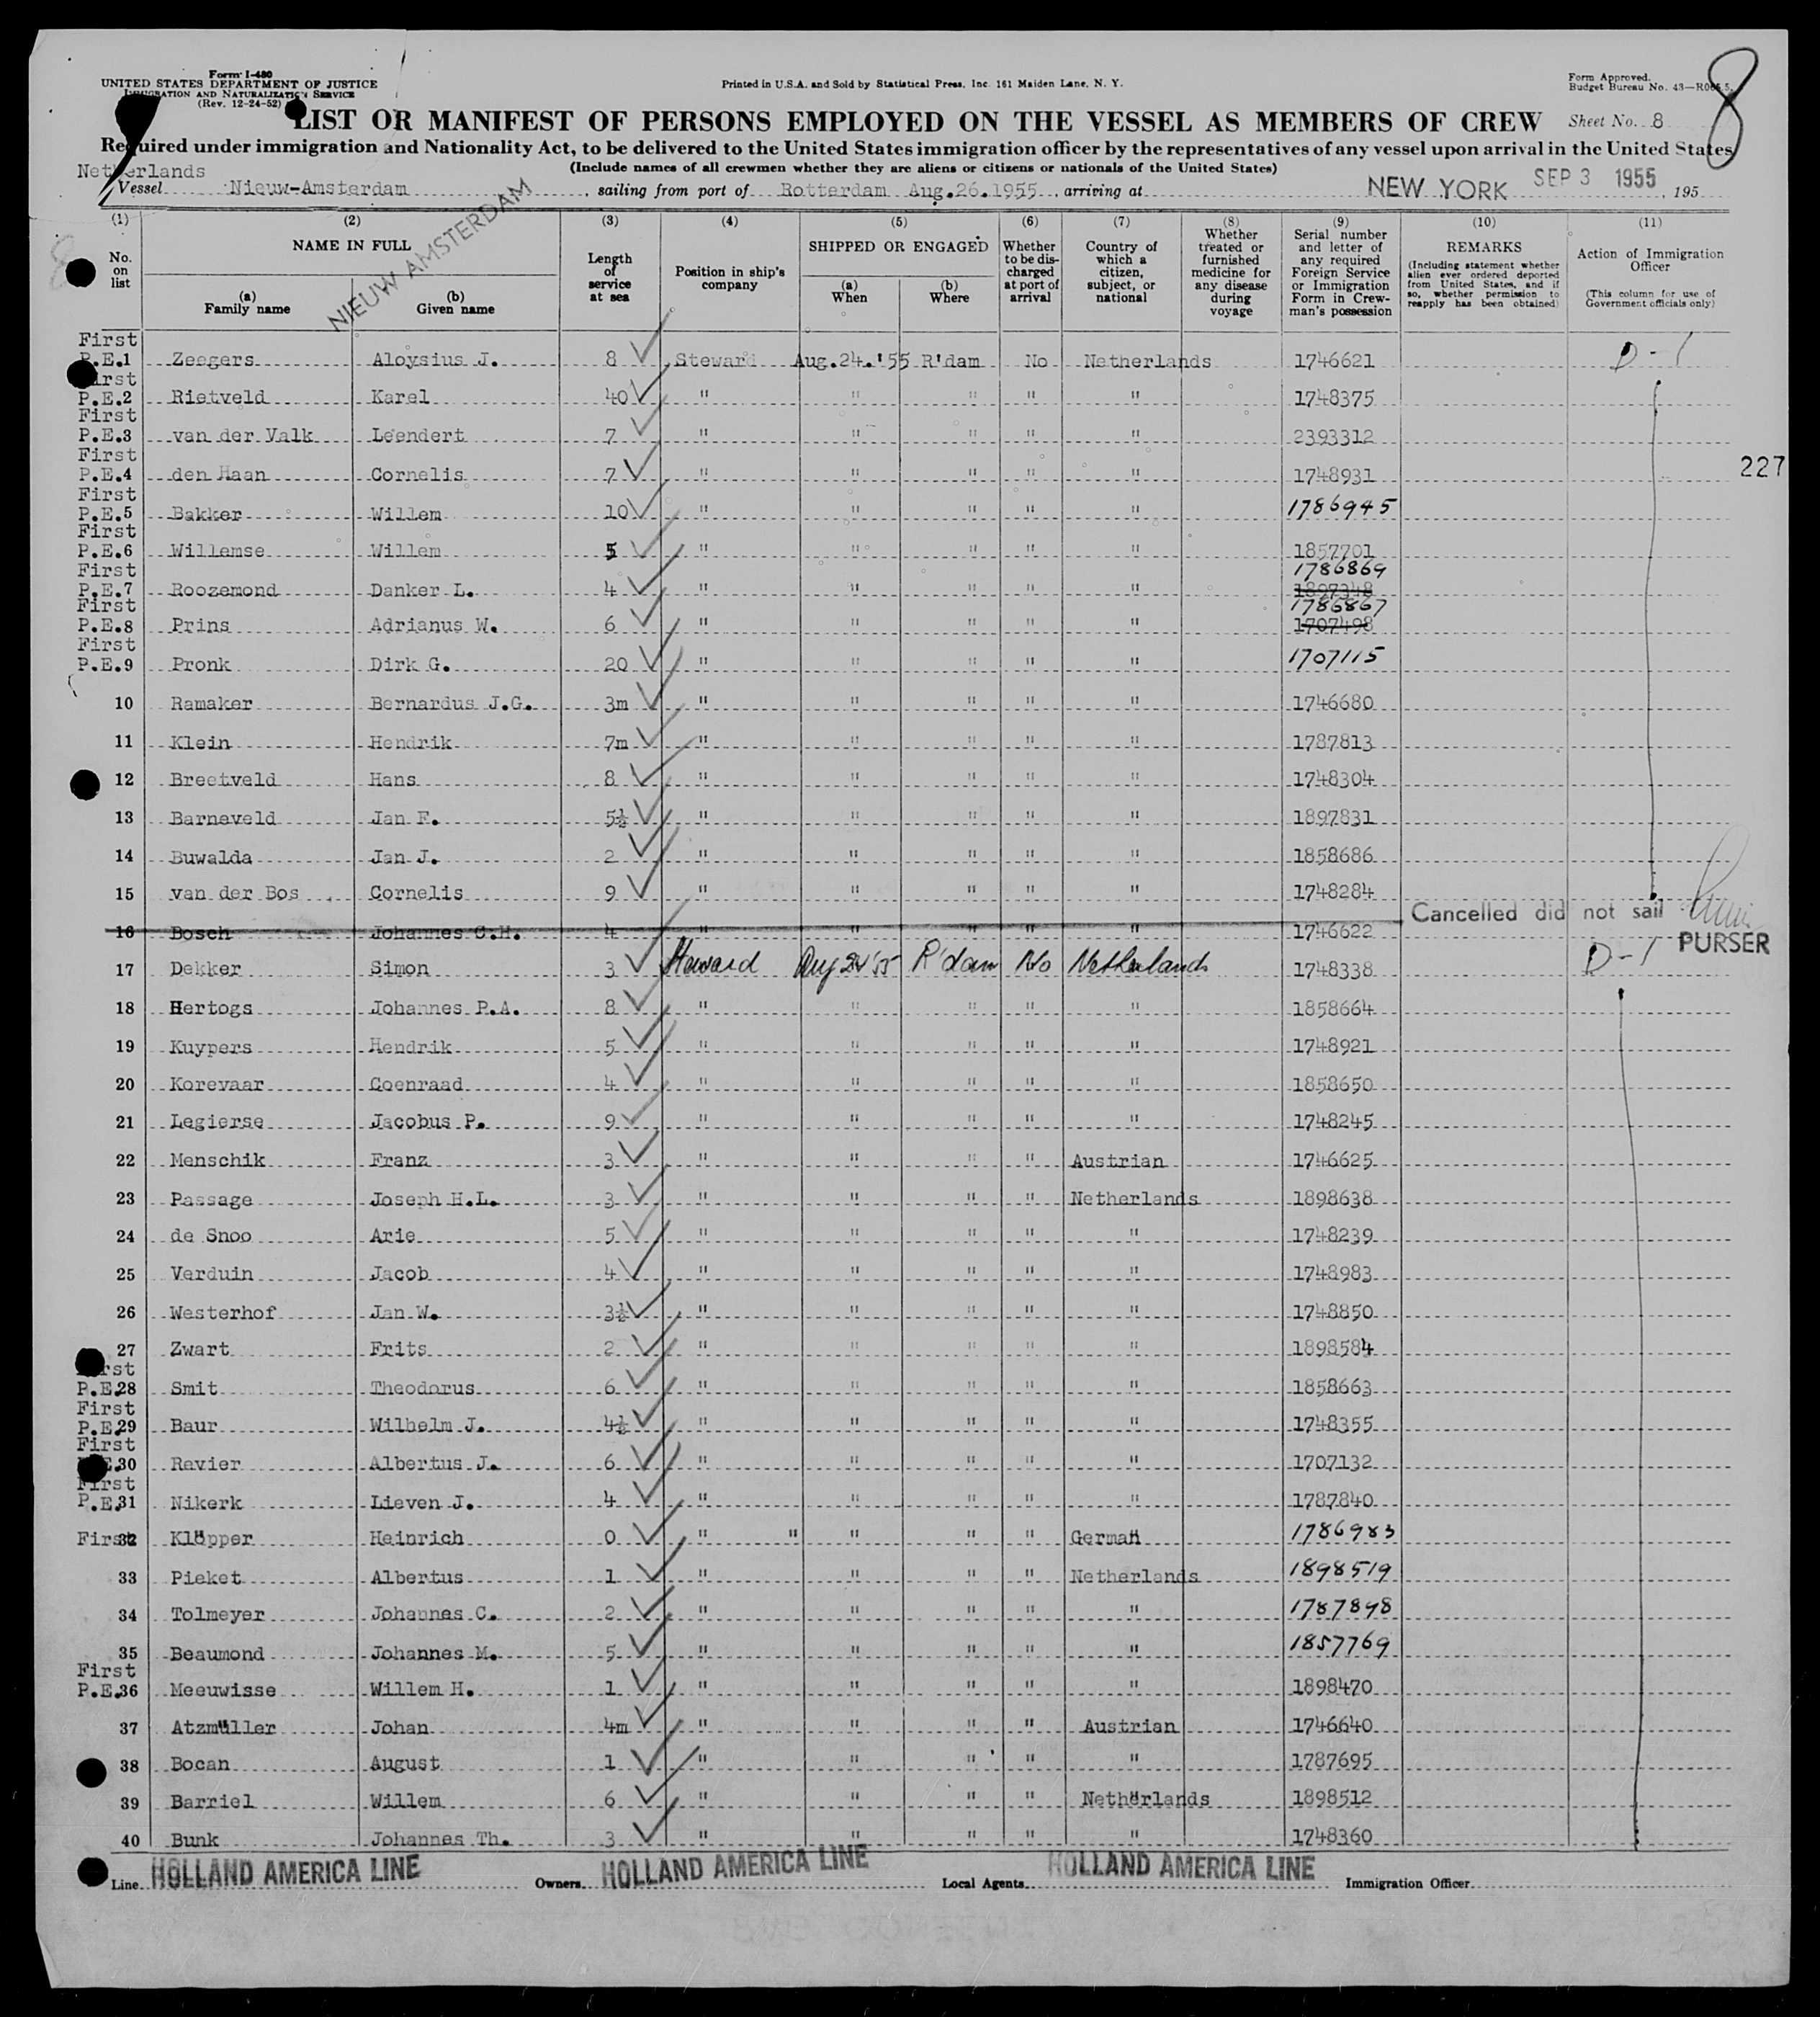 Form I-480
UNITED STATES DEPARTMENT OF JUSTICE
IMMIGRATION AND NATURALIZATION SERVICE
(Rev. 12-24-52)
Printed in U.S.A. and Sold by Statistical Press, Inc. 161 Maiden Lane, N. Y.
Form Approved.
Budget Bureau No. 43—R065.5.
8
LIST OR MANIFEST OF PERSONS EMPLOYED ON THE VESSEL AS MEMBERS OF CREW
Sheet No. 8
Required under immigration and Nationality Act, to be delivered to the United States immigration officer by the representatives of any vessel upon arrival in the United States
(Include names of all crewmen whether they are aliens or citizens or nationals of the United States)
Netherlands
Vessel Nieuw-Amsterdam, sailing from port of Rotterdam Aug.26.1955, arriving at NEW YORK SEP 3 1955, 195
NIEUW AMSTERDAM
(1) (2) (3) (4) (5) (6) (7) (8) (9) (10) (11)
No. on list
NAME IN FULL
(a) Family name
(b) Given name
Length of service at sea
Position in ship's company
SHIPPED OR ENGAGED
(a) When
(b) Where
Whether to be discharged at port of arrival
Country of which a citizen, subject, or national
Whether treated or furnished medicine for any disease during voyage
Serial number and letter of any required Foreign Service or Immigration Form in Crewman's possession
REMARKS
(Including statement whether alien ever ordered deported from United States, and if so, whether permission to reapply has been obtained)
Action of Immigration Officer
(This column for use of Government officials only)
First P.E.1 Zeegers Aloysius J. 8 Steward Aug.24.'55 R'dam No Netherlands 1746621 D-1
First P.E.2 Rietveld Karel 40 " " " " " 1748375
First P.E.3 van der Valk Leendert 7 " " " " " 2393312
First P.E.4 den Haan Cornelis 7 " " " " " 1748931
227
First P.E.5 Bakker Willem 10 " " " " " 1786945
First P.E.6 Willemse Willem 5 " " " " " 1857701
First P.E.7 Roozemond Danker L. 4 " " " " " 1786869 1897348
First P.E.8 Prins Adrianus W. 6 " " " " " 1786867 1707498
First P.E.9 Pronk Dirk G. 20 " " " " " 1707115
10 Ramaker Bernardus J.G. 3m " " " " " 1746680
11 Klein Hendrik 7m " " " " " 1787813
12 Breetveld Hans 8 " " " " " 1748304
13 Barneveld Jan F. 5½ " " " " " 1897831
14 Buwalda Jan J. 2 " " " " " 1858686
15 van der Bos Cornelis 9 " " " " " 1748284
16 Bosch Johannes C.H. 4 " " " " " 1746622 Cancelled did not sail
PURSER
17 Dekker Simon 3 Steward Aug 24 '55 R'dam No Netherlands 1748338 D-1
18 Hertogs Johannes P.A. 8 " " " " " 1858664
19 Kuypers Hendrik 5 " " " " " 1748921
20 Korevaar Coenraad 4 " " " " " 1858650
21 Legierse Jacobus P. 9 " " " " " 1748245
22 Menschik Franz 3 " " " " Austrian 1746625
23 Passage Joseph H.L. 3 " " " " Netherlands 1898638
24 de Snoo Arie 5 " " " " " 1748239
25 Verduin Jacob 4 " " " " " 1748983
26 Westerhof Jan W. 3½ " " " " " 1748850
27 Zwart Frits 2 " " " " " 1898584
First P.E.28 Smit Theodorus 6 " " " " " 1858663
First P.E.29 Baur Wilhelm J. 4½ " " " " " 1748355
First P.E.30 Ravier Albertus J. 6 " " " " " 1707132
First P.E.31 Nikerk Lieven J. 4 " " " " " 1787840
First 32 Klöpper Heinrich 0 " " " " " German 1786983
33 Pieket Albertus 1 " " " " Netherlands 1898519
34 Tolmeyer Johannes C. 2 " " " " " 1787898
35 Beaumond Johannes M. 5 " " " " " 1857769
First P.E.36 Meeuwisse Willem H. 1 " " " " " 1898470
37 Atzmüller Johan 4m " " " " Austrian 1746640
38 Bocan August 1 " " " " " 1787695
39 Barriel Willem 6 " " " " Netherlands 1898512
40 Bunk Johannes Th. 3 " " " " " 1748360
Line HOLLAND AMERICA LINE Owners HOLLAND AMERICA LINE Local Agents HOLLAND AMERICA LINE Immigration Officer